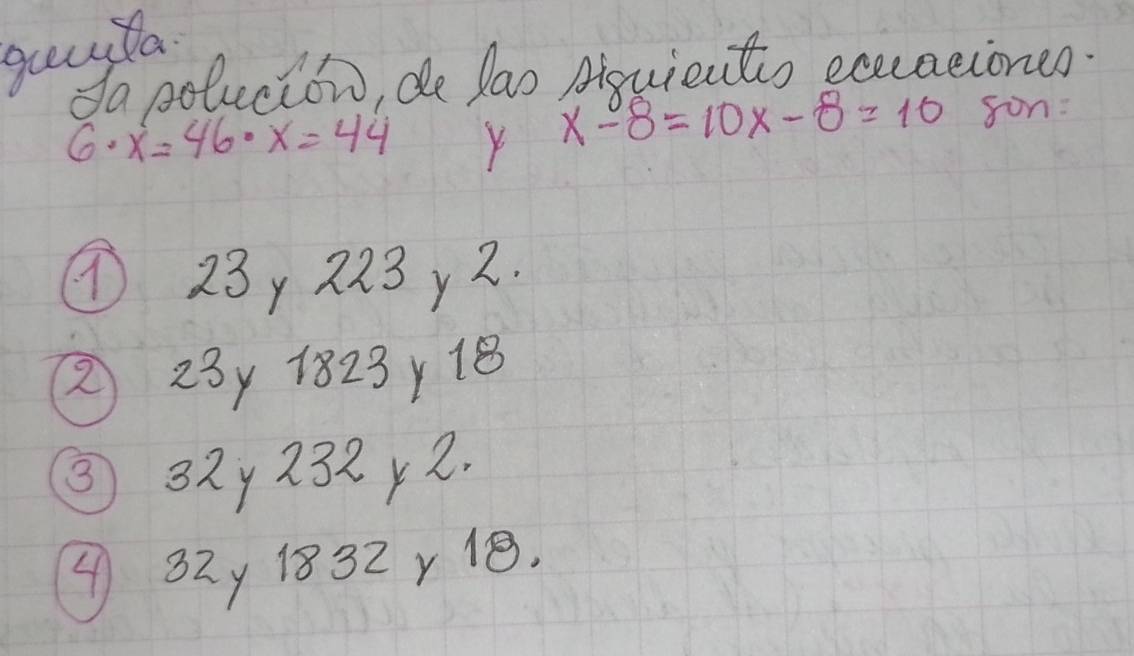 La solución, de las siguientes ecuaciones.
6·x=46·x=44 y x-8=10x-8=10 son:
① 23 y 223 y 2.
② 23 y 1823 y 18
③ 32 y 232 y 2.
④ 32 y 1832 y 18.